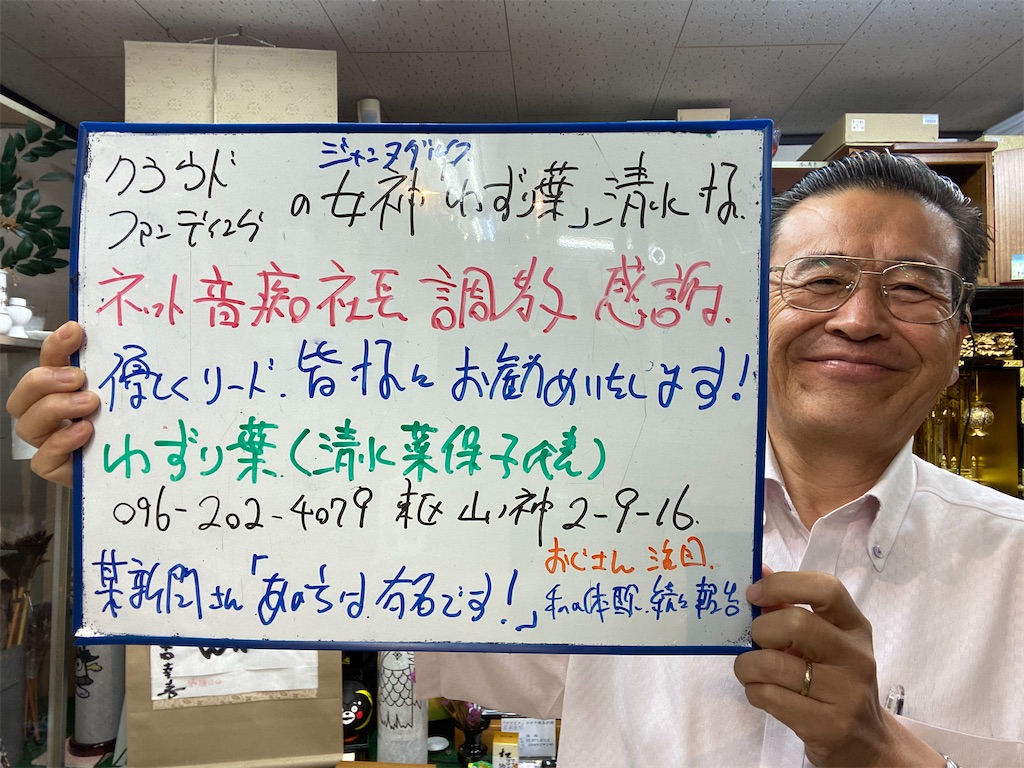 ジャンヌダルク
クラウド
ファンディング の女神「わずり葉」清水様
ネット音痴社長 調教 感謝.
優しくリード. 皆様に お勧めいたします!
わずり葉(清水菜保子代表)
096-202-4079 東区 山ノ神 2-9-16.
おじさん 注目.
某新聞さん「あの方は有名です!」私の体験.続々報告